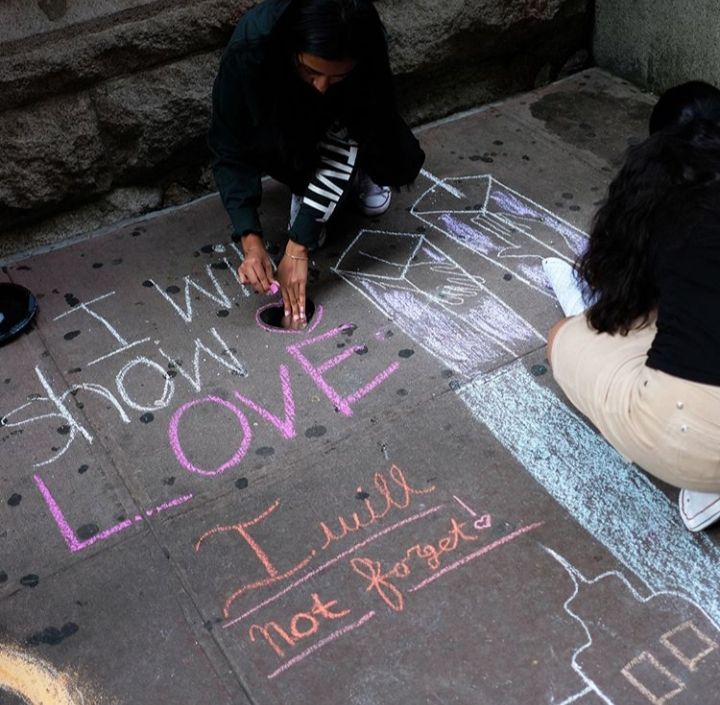 I will
show
LOVE
I will
Not forget!
TIVIT